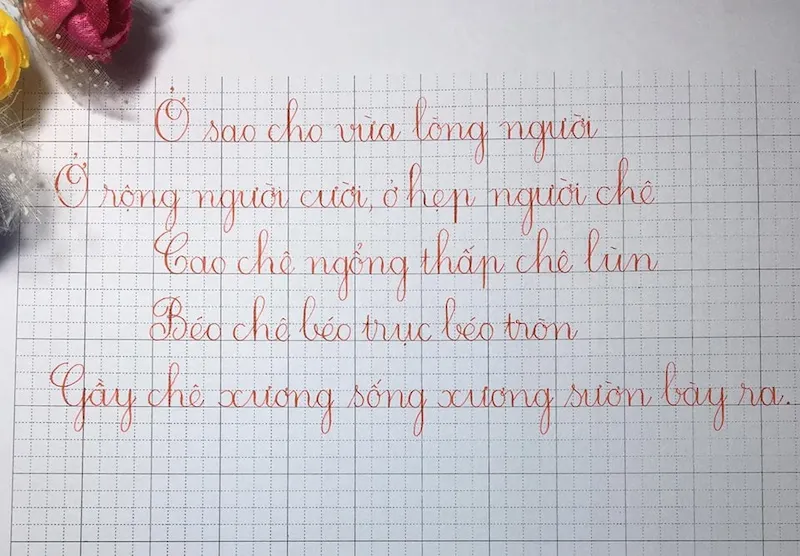 Ở sao cho vừa lòng người
Ở rộng người cười, ở hẹp người chê
Cao chê ngổng thấp chê lùn
Béo chê béo trục béo tròn
Gầy chê xương sống xương sườn bày ra.